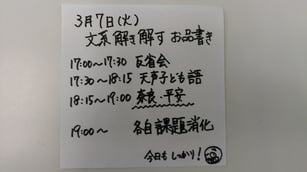 3月7日(火)
文系解き解す お品書き
17:00〜17:30 反省会
17:30〜18:15 天声子ども語
18:15〜19:00 奈良、平安
19:00〜 各自課題消化
今日もしっかり!